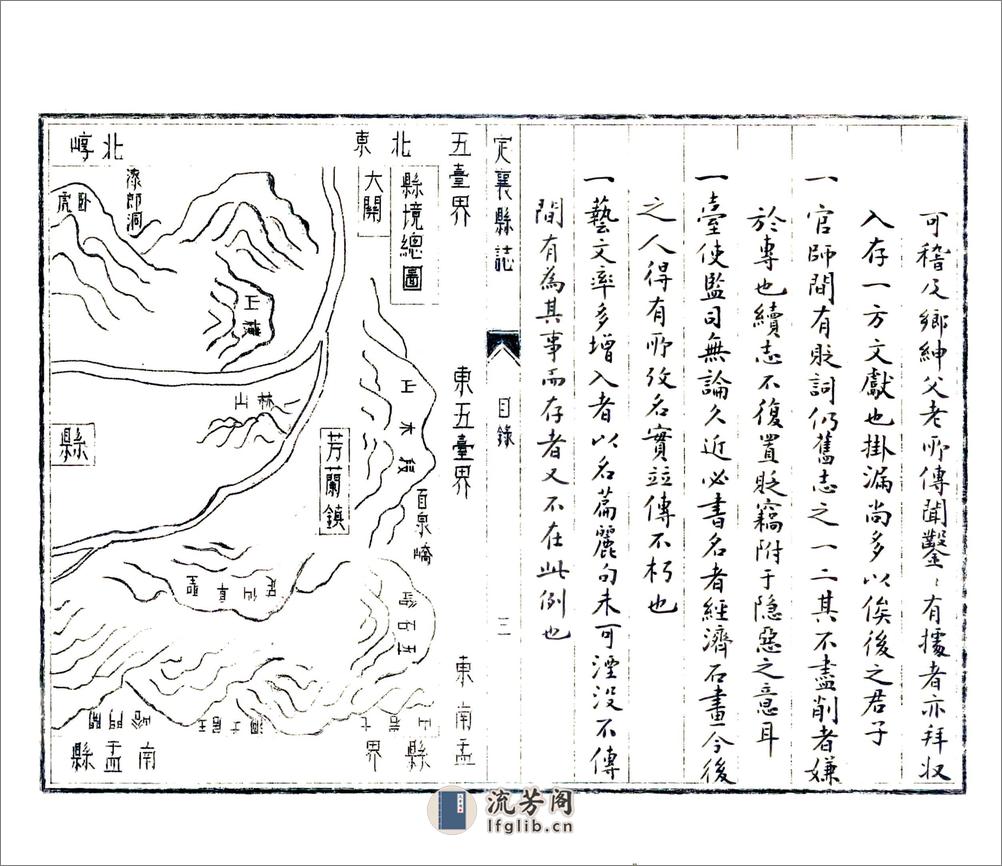 可稽及鄉紳父老所傳聞鑿〻有據者亦拜收
入存一方文獻也掛漏尚多以俟後之君子
一官師間有貶詞仍舊志之一二其不盡削者嫌
於專也續志不復置貶竊附于隱惡之意耳
一臺使監司無論久近必書名者經濟石畫今後
之人得有所攷名實竝傳不朽也
一藝文率多增入者以名篇麗句未可湮没不傳
間有為其事而存者又不在此例也
定襄縣誌
目錄
三
五臺界
東五臺界
東南盂
縣界
北東
縣境總圖
大關
芳蘭鎮
百泉嶠
北崞
漆郎洞
臥虎
林山
縣
南盂縣
流芳阁
lfglib.cn